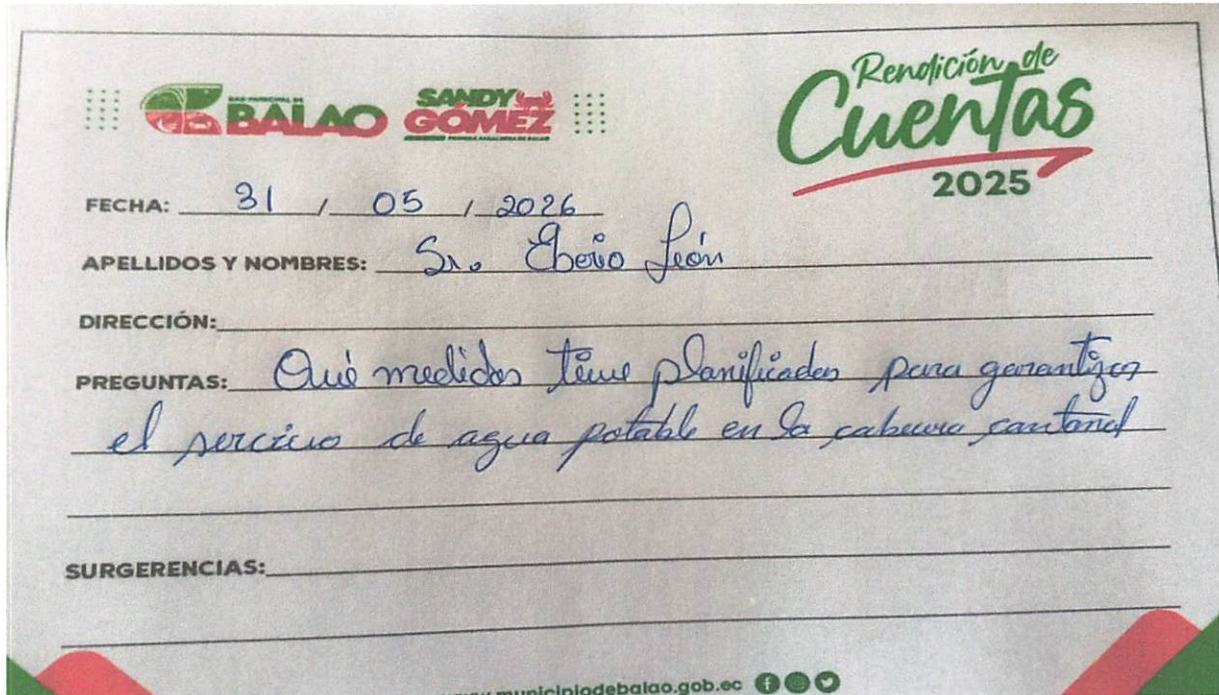 GAD MUNICIPAL DE
BALAO
SANDY
GÓMEZ
Rendición de
Cuentas
2025
FECHA: 31 / 05 / 2026
APELLIDOS Y NOMBRES: Sr. León
DIRECCIÓN:
PREGUNTAS: Qué medidas tiene planificadas para garantizar
el servicio de agua potable en la cabecera cantonal
SURGERENCIAS:
www.municipiodebalao.gob.ec